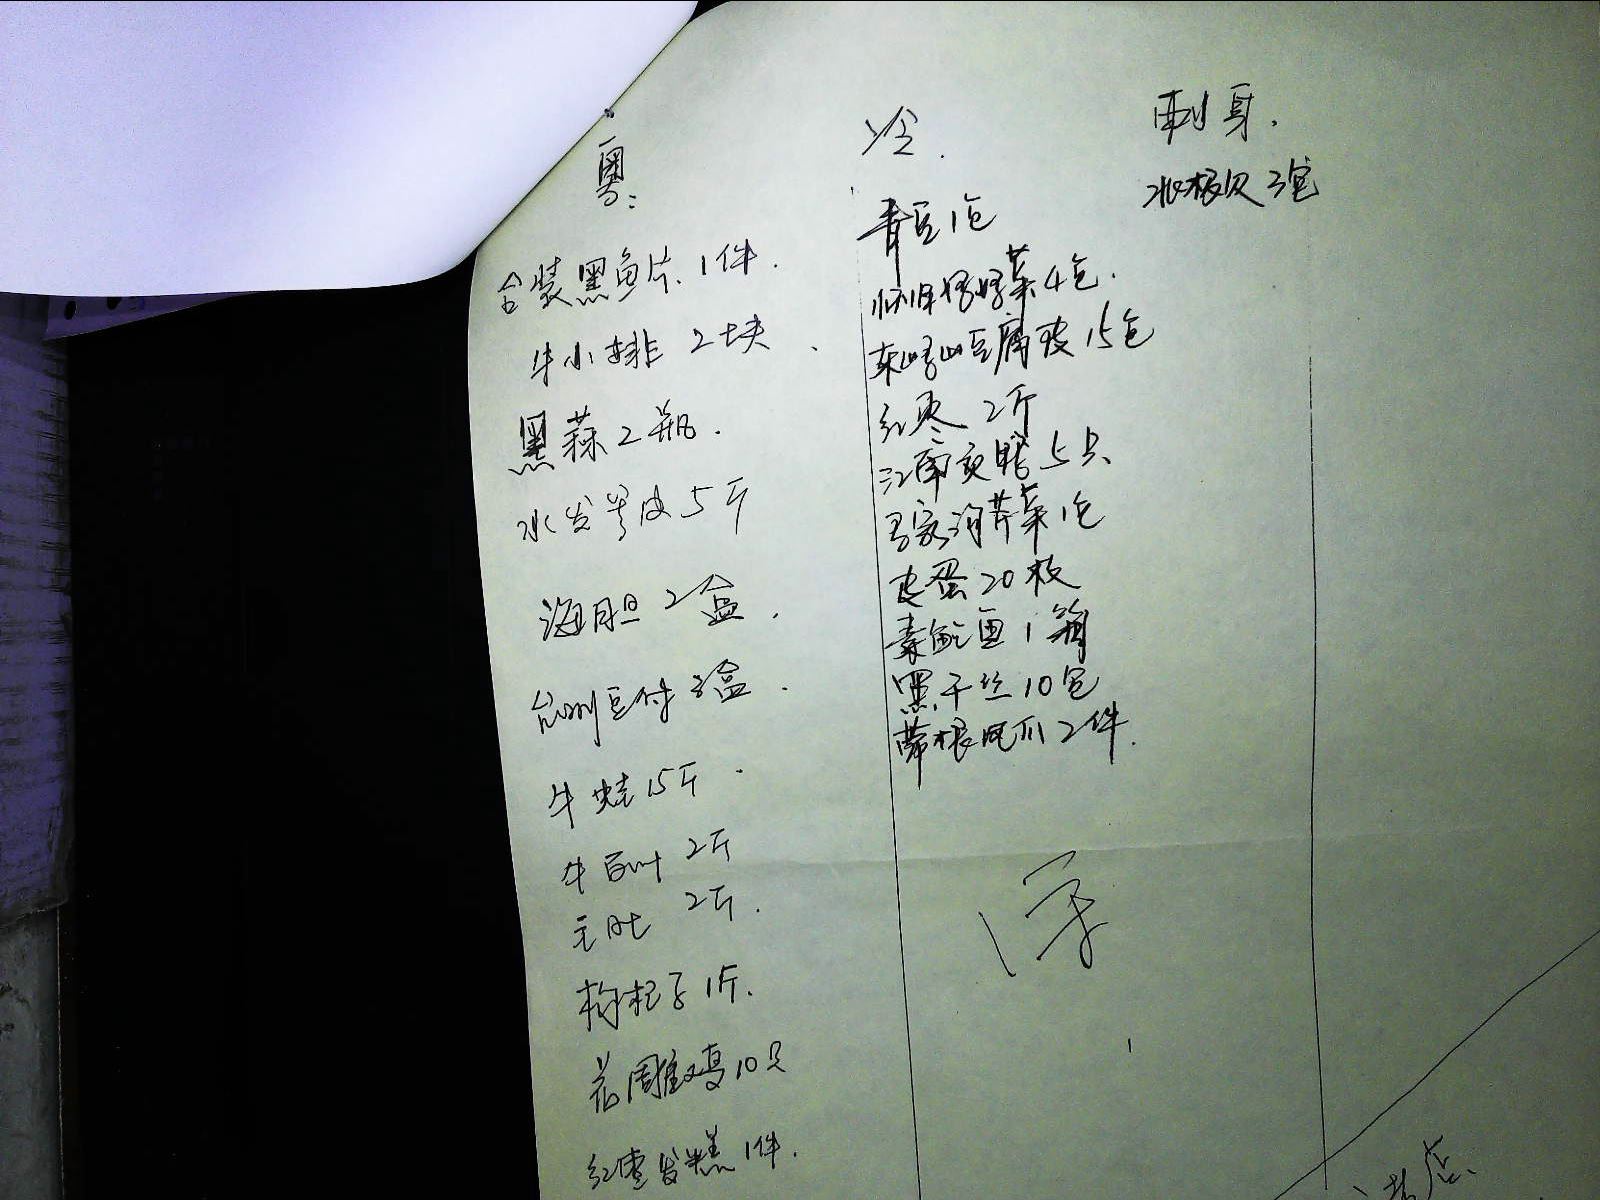 粤:
合装黑鱼片.1件.
牛小排 2块.
黑蒜2瓶.
水发 皮5斤
海胆 2盒.
台州豆付 3盒.
牛蛙15斤.
牛百叶 2斤
毛肚 2斤.
枸杞子1斤.
花雕鸡10只
红枣发糕1件.
冷.
青豆1包
菜4包.
豆腐皮15包
红枣 2斤
江南 鸭5只
芹菜1包
皮蛋20枚
素鲍鱼1箱
黑干丝10包
带根凤爪2件.
刺身.
北极贝3包